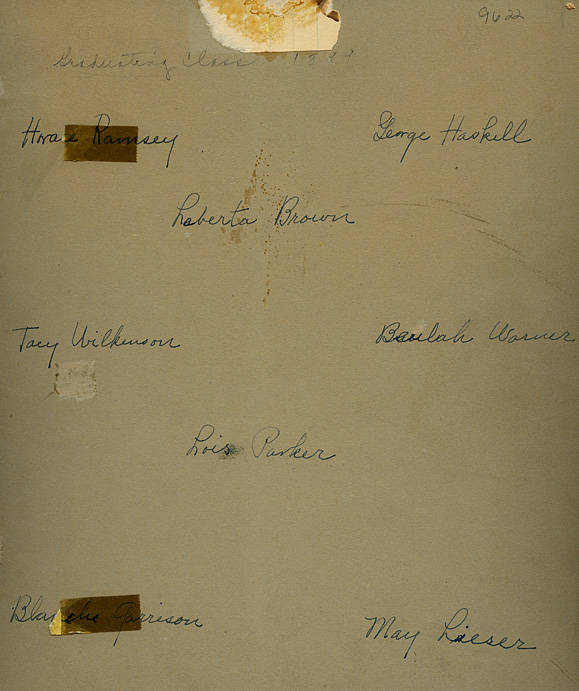 9622
Graduating Class 1899
Horace Ramsey
George Haskill
Loberta Brown
Tacy Wilkinson
Beulah Warner
Lois Parker
Blanche Garrison
May Lieser